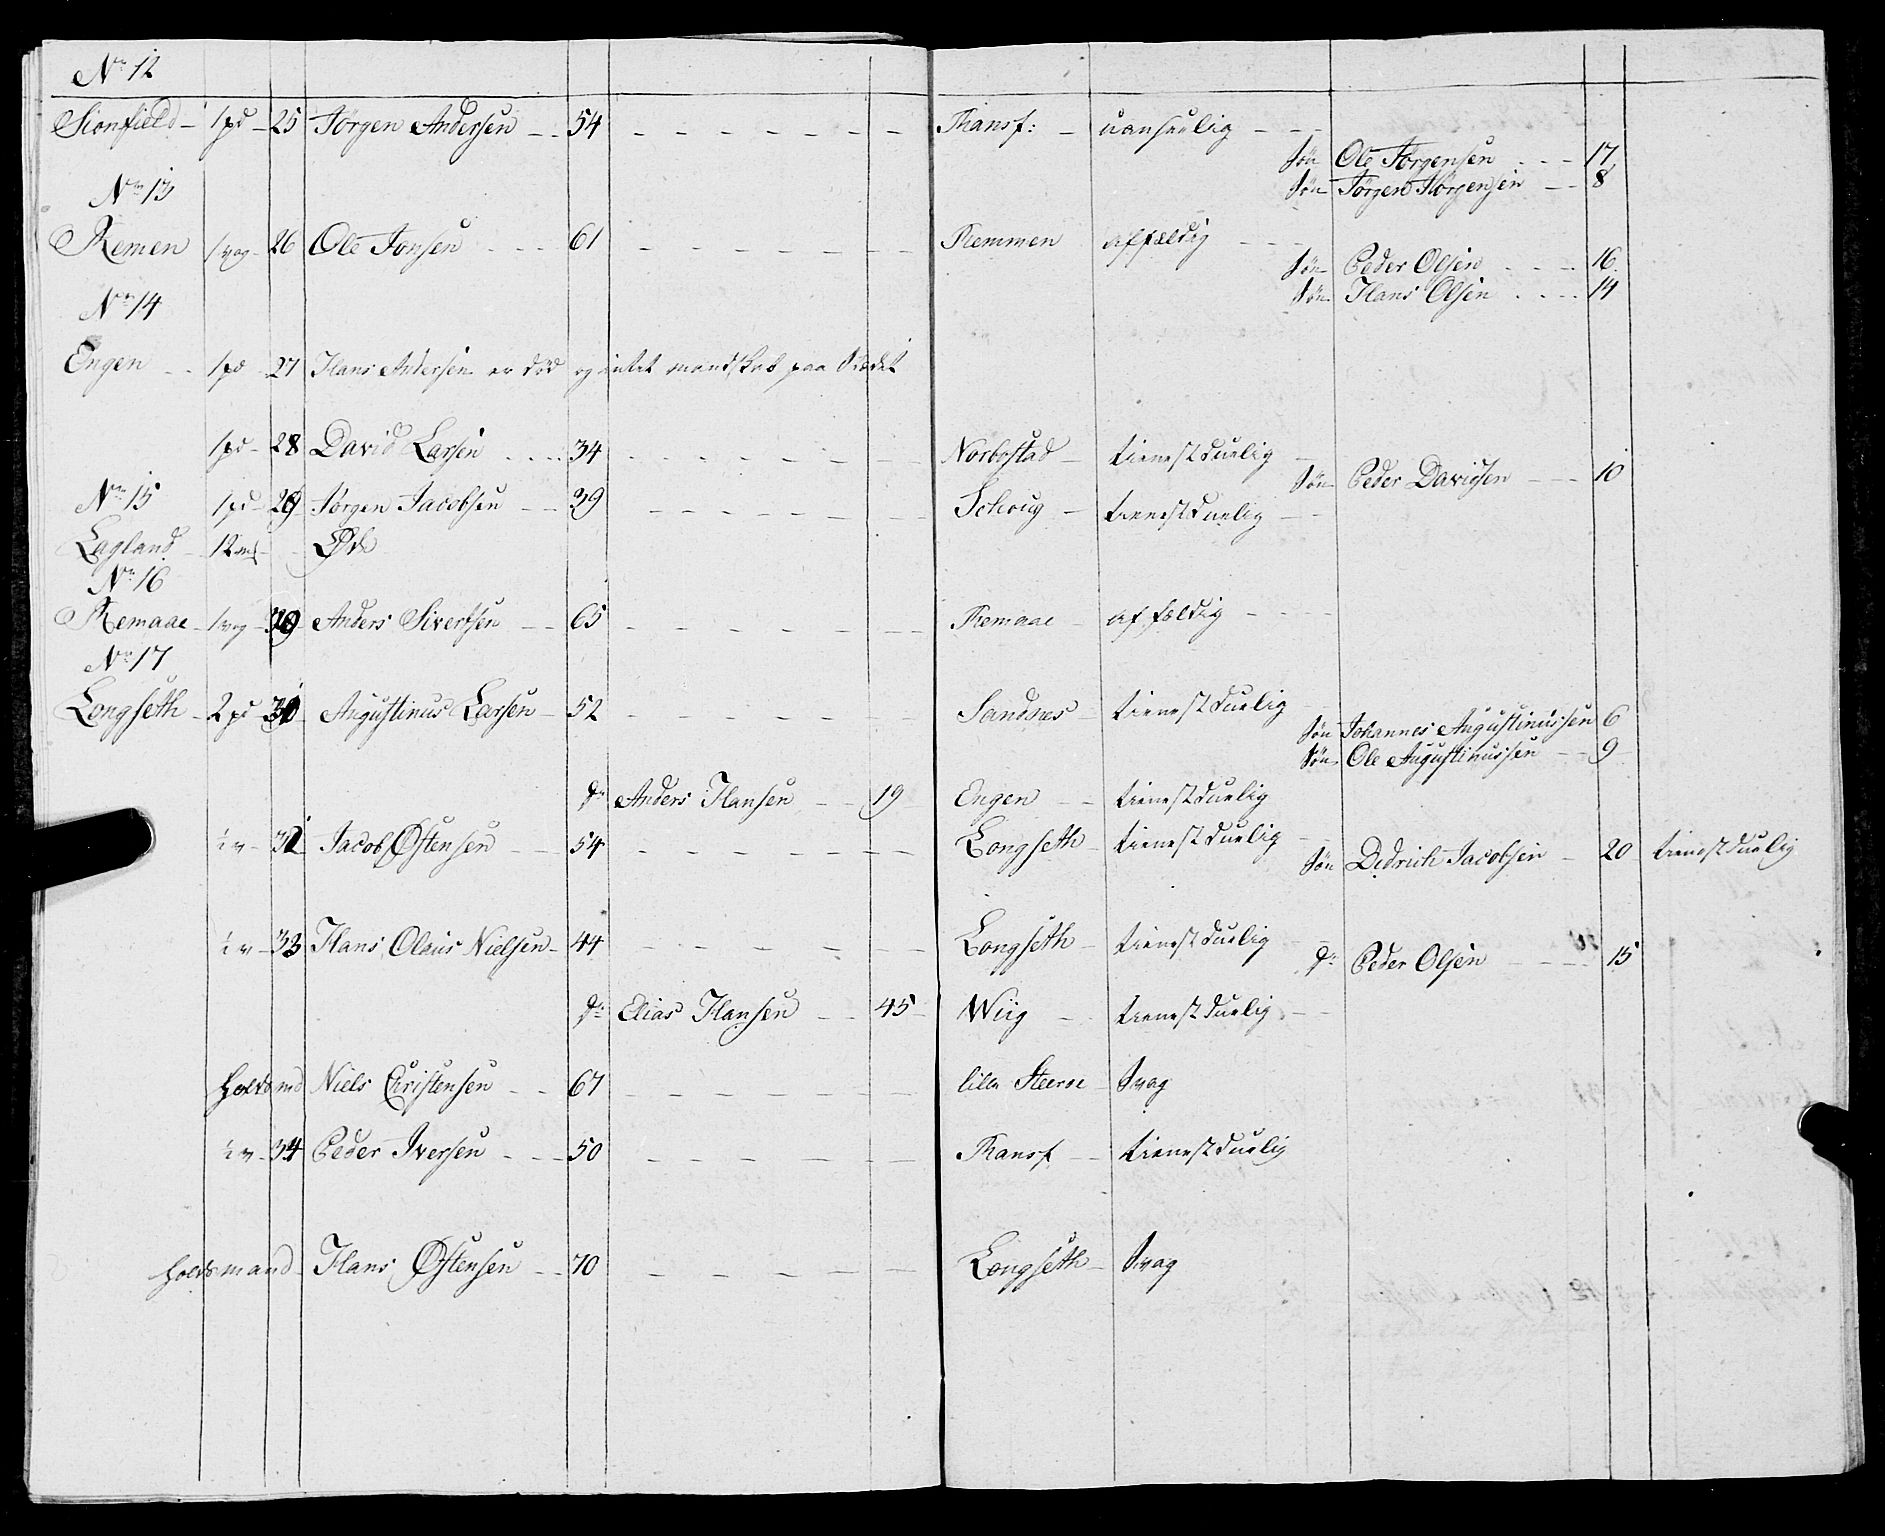 No 12
Sionfield 1 pd 25 Jørgen Andersen 54 Ransf: uanseelig
Søn Ole Jørgensen 17
No 13 Søn Jørgen Jørgensen 8
Remen 1 vog 26 Ole Jonsen 61 Remmen affældig
Søn Peder Olsen 16
No 14 Søn Hans Olsen 14
Engen 1 pd 27 Hans Andersen er død og intet mandskab paa Stædet
1 pd 28 David Larsen 34 Norbostad tienestduelig
Søn Peder Davidsen 10
No 15 1 pd 29 Jørgen Jacobsen 39 Schoug tienestduelig
Lagland 12 mk Øde
No 16
Remaae 1 vog 30 Anders Sivertsen 65 Remaae affældig
No 17
Longseth 2 pd 31 Augustinus Larsen 52 Sandnes tienestduelig
Søn Johannes Augustinussen 6
Søn Ole Augustinussen 9
do Anders Hansen 19 Engen tienestduelig
1 v 32 Jacob Østensen 54 Longseth tienestduelig
Søn Dedrich Jacobsen 20 tienestduelig
1 v 33 Hans Olaus Nielsen 44 Longseth tienestduelig
do Peder Olsen 15
do Elias Hansen 45 Wiig tienestduelig
Holdsmd Niels Christensen 67 lille Steeroe Svag
1 v 34 Peder Iversen 50 Ransf tienestduelig
Holdsmand Hans Østensen 70 Longseth Svag